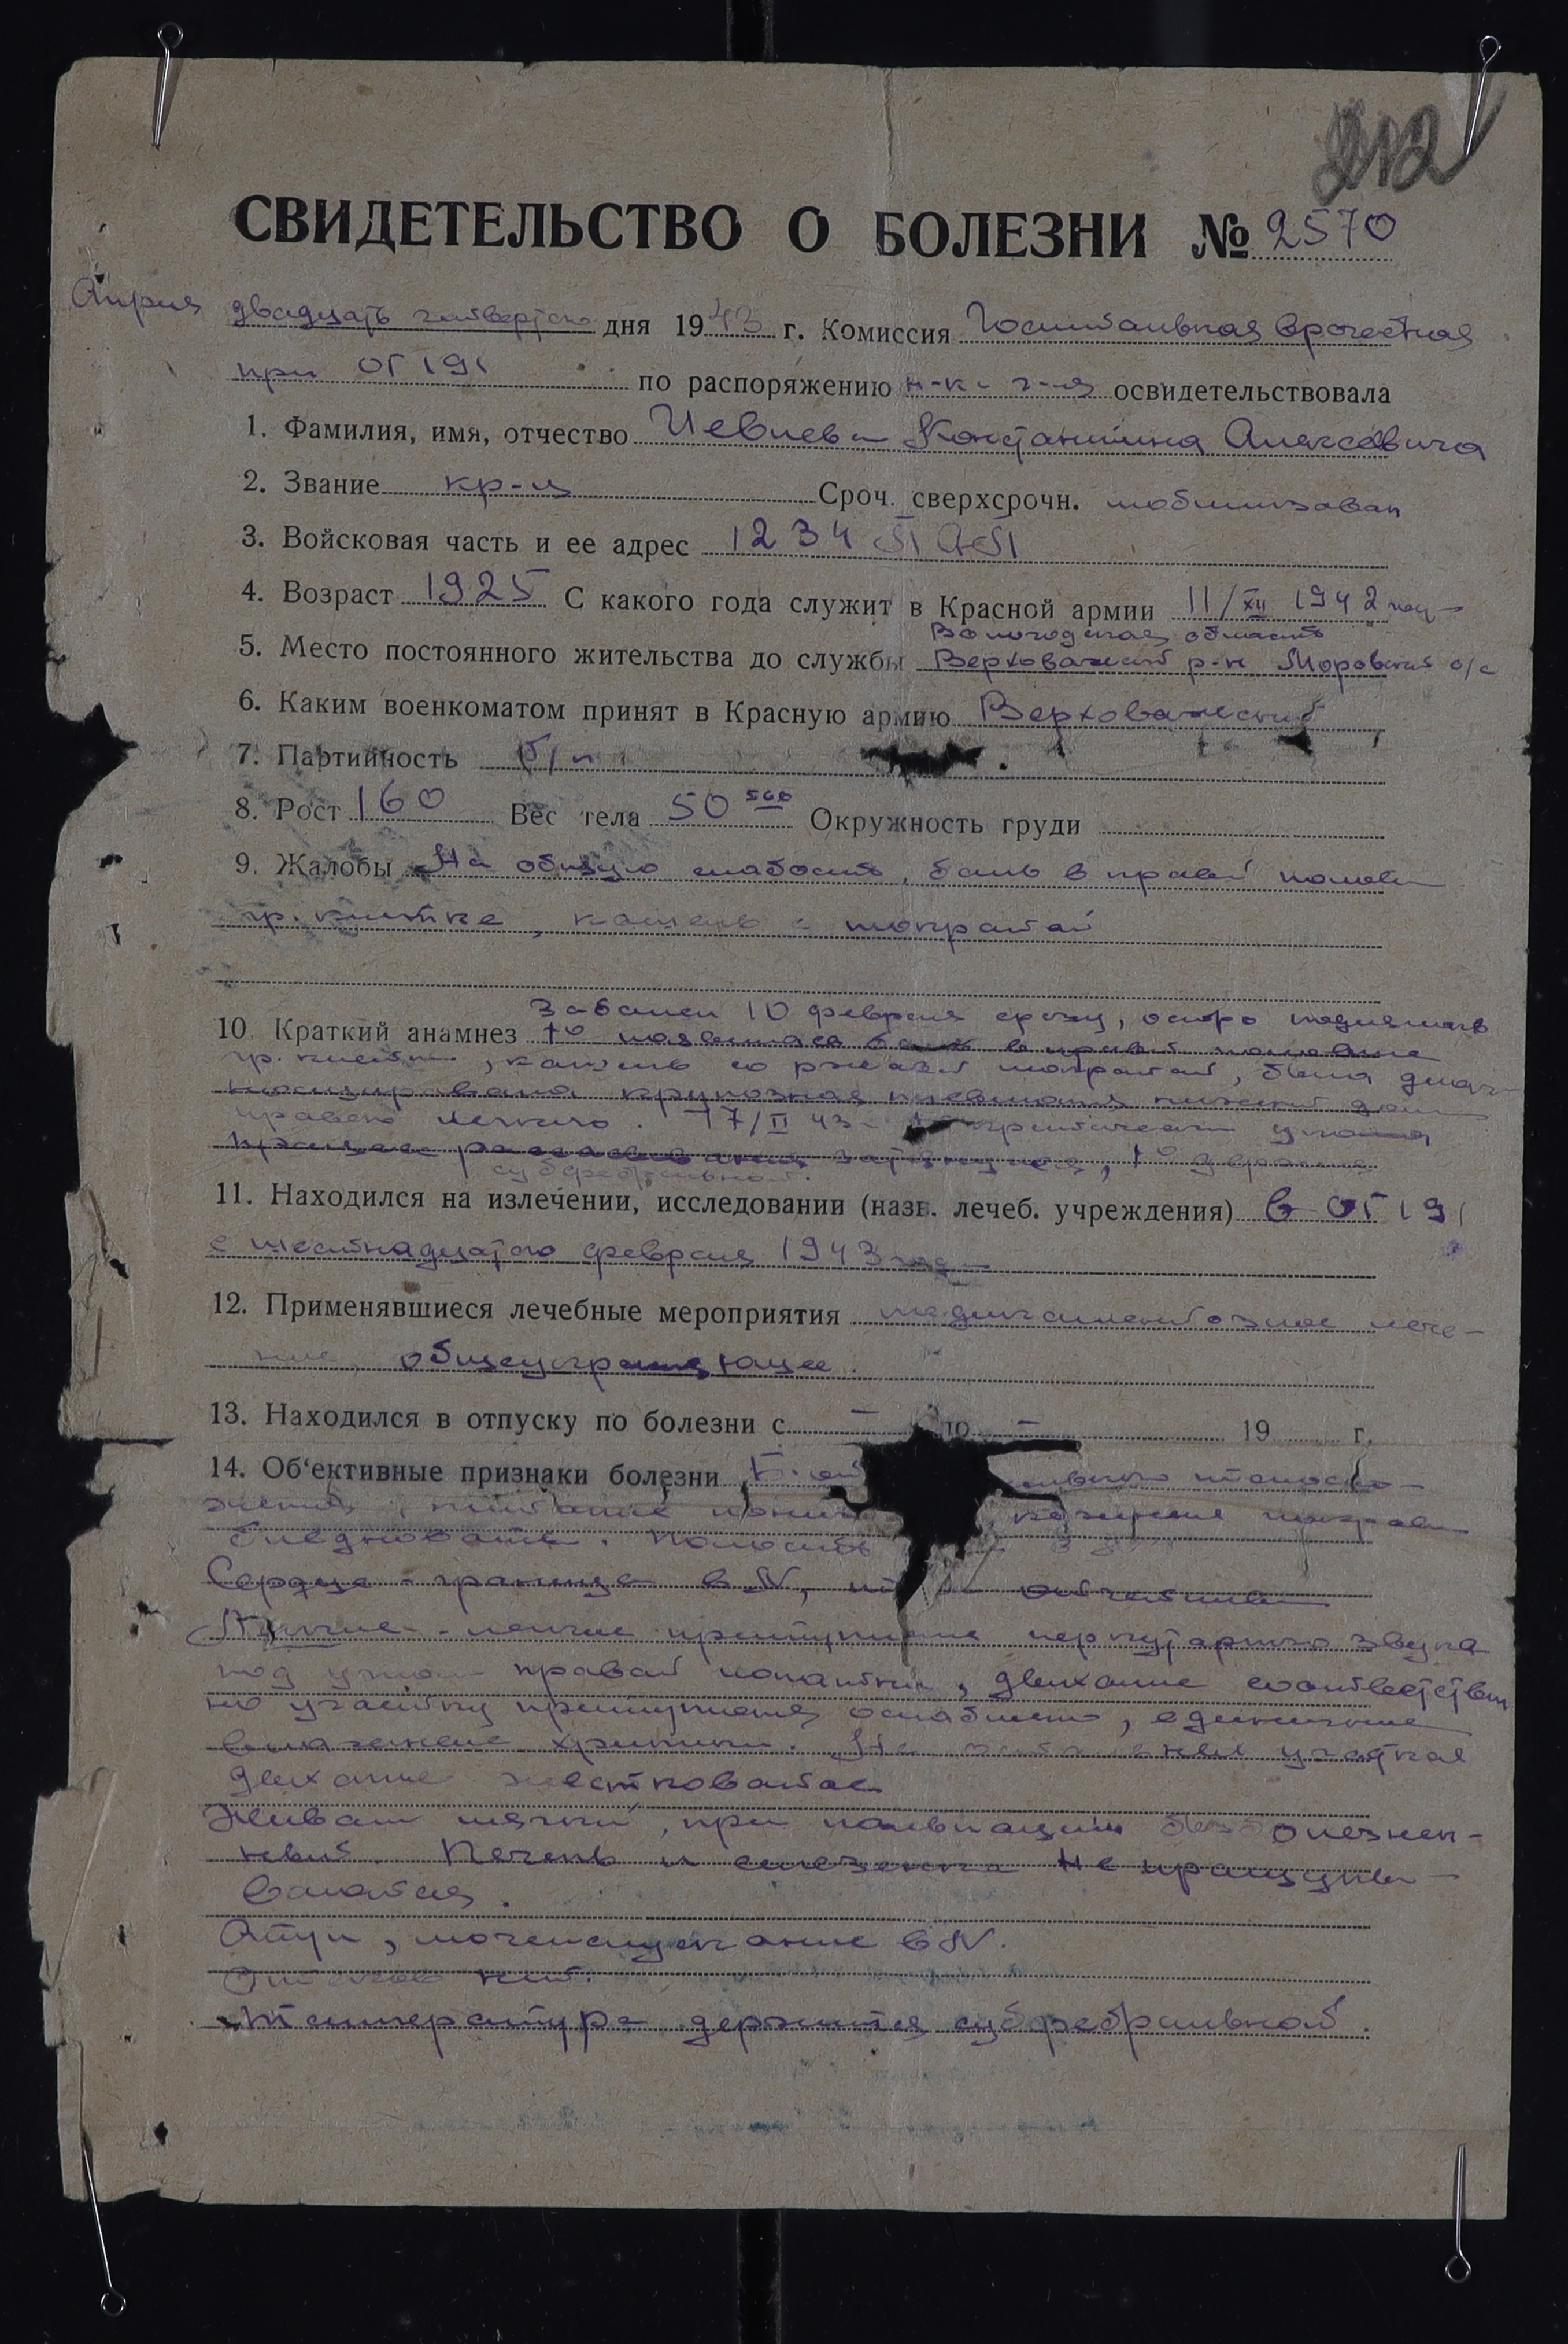 212
СВИДЕТЕЛЬСТВО О БОЛЕЗНИ № 2570
Апреля двадцать четвертого дня 1943 г. Комиссия Госпитальная врачебная
при ОГ 191 по распоряжению н-ка г-ля освидетельствовала
1. Фамилия, имя, отчество Константина Алексеевича
2. Звание кр-ц Сроч. сверхсрочн. мобилизован
3. Войсковая часть и ее адрес 1234
4. Возраст 1925 С какого года служит в Красной армии 11/XII 1942
Вологодская область
5. Место постоянного жительства до службы Верховажский р-н Моровский с/с
6. Каким военкоматом принят в Красную армию Верховажский
7. Партийность б/п
8. Рост 160 Вес тела 50 500 Окружность груди
9. Жалобы На общую слабость, боль в правой полов.
гр. клетке, кашель с мокротой
Заболел 10 февраля сразу, остро поднялась
10. Краткий анамнез t° появилась боль в правой половине
гр. клетки, кашель со ржавой мокротой, была диаг-
носцирована крупозная пневмония нижней доли
правого легкого. 17/II 43 t° критически упала
процесс рассасывания затянулся, t° держится
субфебрильной.
11. Находился на излечении, исследовании (назв. лечеб. учреждения) в ОГ 191
с шестнадцатого февраля 1943 года
12. Применявшиеся лечебные мероприятия медикаментозное лече-
ние, общеукрепляющее.
13. Находился в отпуску по болезни с – до – 19 г.
14. Об'ективные признаки болезни Б-ой телосло-
жения, питание кожные покровы
бледноваты. Полость
Сердце - граница в N, отчетливы
Легкие - легкое притупление перкуторного звука
под углом правой лопатки, дыхание соответствен
но участку притупления ослаблено, единичные
влажные хрипы. На остальных участках
дыхание жестковатое
Живот мягкий, при пальпации безболезнен-
ный. Печень и селезенка не прощупы-
ваются.
Стул, мочеиспускание в N.
Отеков нет.
Температура держится субфебрильной.